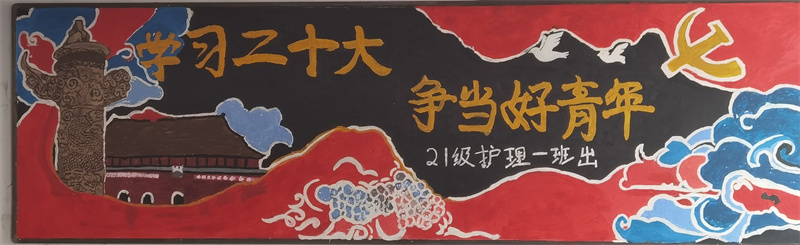 学习二十大
争当好青年
21级护理一班出